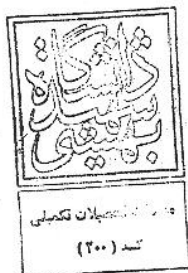 دانشگاه
شهید
بهشتی
تحصیلات تکمیلی
کد (۲۰۰)